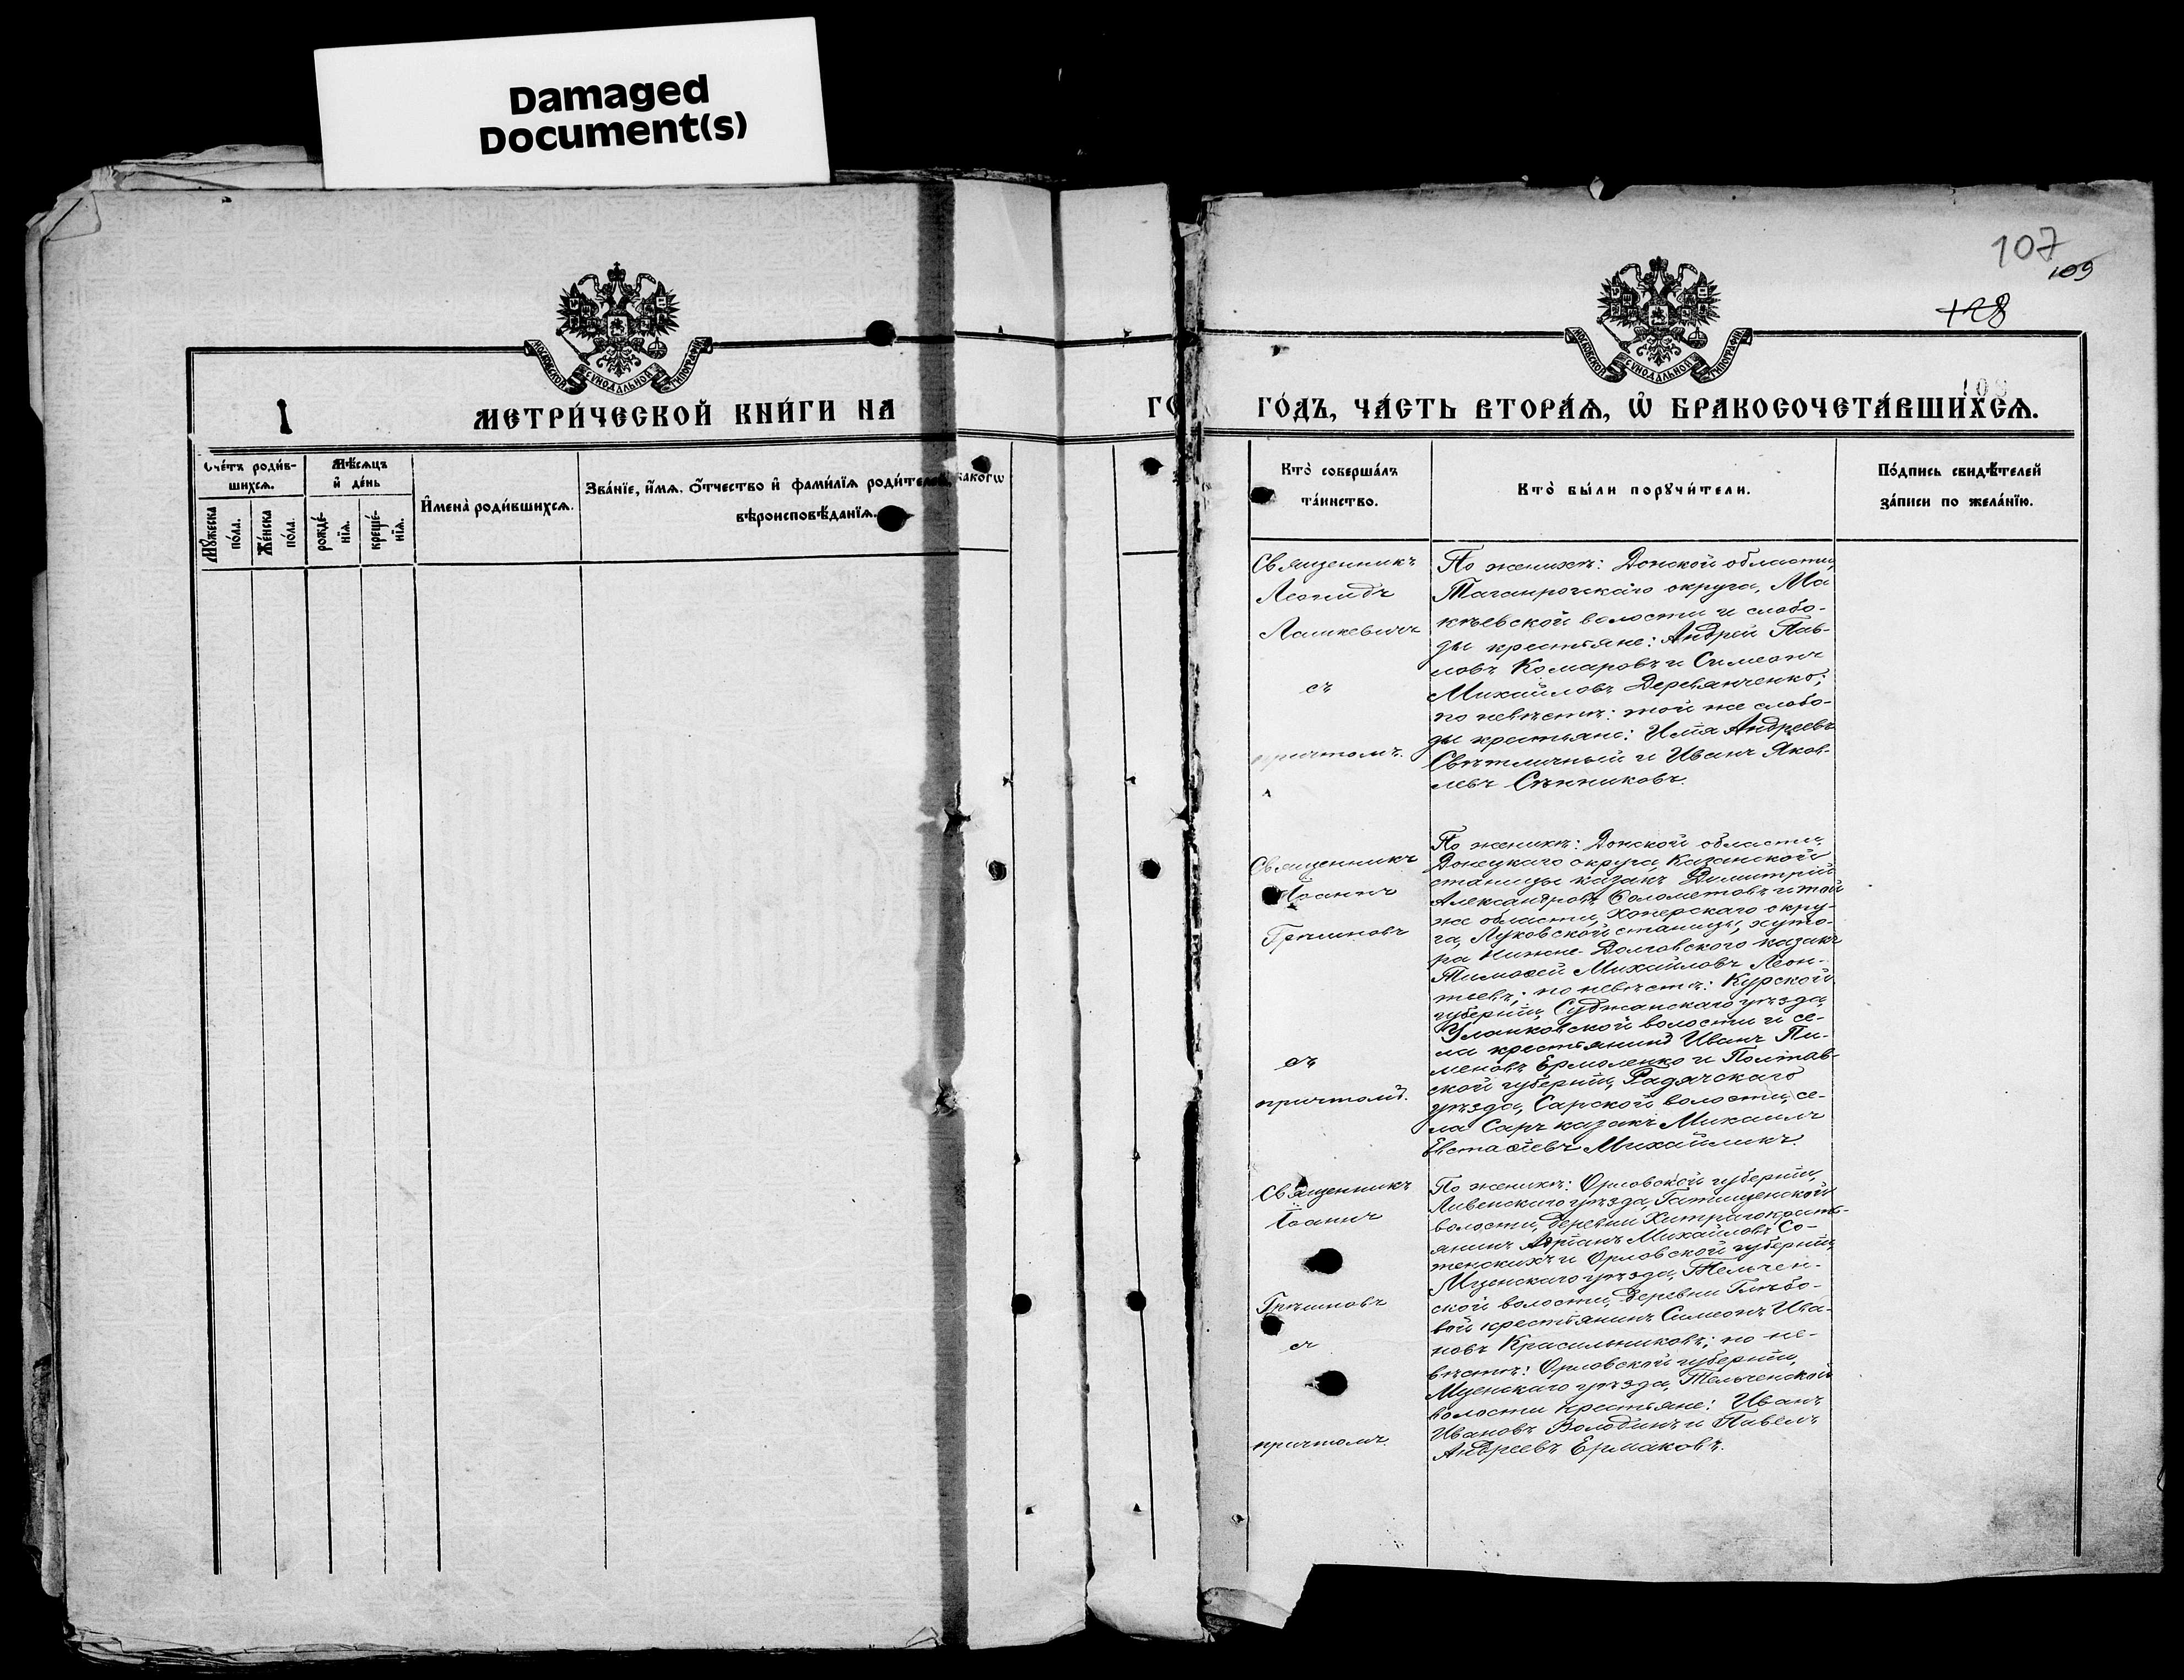 Damaged
Document(s)
МОСКОВСКОЙ СѴНОДАЛЬНОЙ ТИПОГРАФІИ
1
МЕТРИ́ЧЕСКОЙ КНИ́ГИ НА
Сче́тъ роди́в-
шихсѧ.
Мѣ́сѧцъ
и҆ де́нь
Мꙋ́жеска
по́ла.
Же́нска
по́ла.
рожде́-
нїѧ.
креще́-
нїѧ.
И҆мена̀ роди́вшихсѧ.
Зва́нїе, и҆́мѧ, ѻ҆́тчество и҆ фами́лїѧ роди́телей,
вѣроисповѣ́данїѧ.
какогѡ
ГО
107
109
128
МОСКОВСКОЙ СѴНОДАЛЬНОЙ ТИПОГРАФІИ
109
ГО́ДЪ, ЧА́СТЬ ВТОРА́Ѧ, Ѡ҆ БРАКОСОЧЕТА́ВШИХСѦ.
Кто̀ соверша́лъ
та́инство.
Кто̀ бы́ли порꙋчи́тели.
По́дпись свидѣ́телей
за́писи по жела́нїю.
Священникъ
Леонидъ
Лашкевичъ
съ
причтомъ.
По женихѣ: Донской области,
Таганрогскаго округа, Ма
кѣевской волости и слобо-
ды крестьяне: Андрей Пав-
ловъ Комаровъ и Симеонъ
Михайловъ Деревянченко;
по невѣстѣ: той же слобо-
ды крестьяне: Илія Андреевъ
Свѣтличный и Иванъ Яков-
левъ Сѣнниковъ.
Священникъ
Іоаннъ
Грѣшновъ
съ
причтомъ.
По женихѣ: Донской области,
Донецкаго округа, Казанской
станицы казакъ Димитрій
Александровъ Солометовъ и той
же области, Хоперскаго окру-
га, Луковской станицы, хуто-
ра Нижне-Долговского казакъ
Тимоѳей Михайловъ Леон-
тьевъ; по невѣстѣ: Курской
губерніи, Суджанскаго уѣзда,
Уланковской волости и се-
ла крестьянинъ Иванъ Пи-
меновъ Ермоленко и Полтав-
ской губерніи, Гадячскаго
уѣзда, Сарской волости, се-
ла Саръ казакъ Михаилъ
Евстаѳіевъ Михайликъ.
Священникъ
Іоаннъ
Грѣшновъ
съ
причтомъ.
По женихѣ: Орловской губерніи,
Ливенскаго уѣзда, Гатищенской
волости, деревни Хитраго крест-
янинъ Адріанъ Михайловъ Со-
тенскихъ и Орловской губерніи,
Мценскаго уѣзда, Тельчен-
ской волости, деревни Глѣбо-
вой крестьянинъ Симеонъ Ива-
новъ Красильниковъ; по не-
вѣстѣ: Орловской губерніи,
Мценскаго уѣзда, Тельченской
волости крестьяне: Иванъ
Ивановъ Володинъ и Павелъ
Андреевъ Ермаковъ.